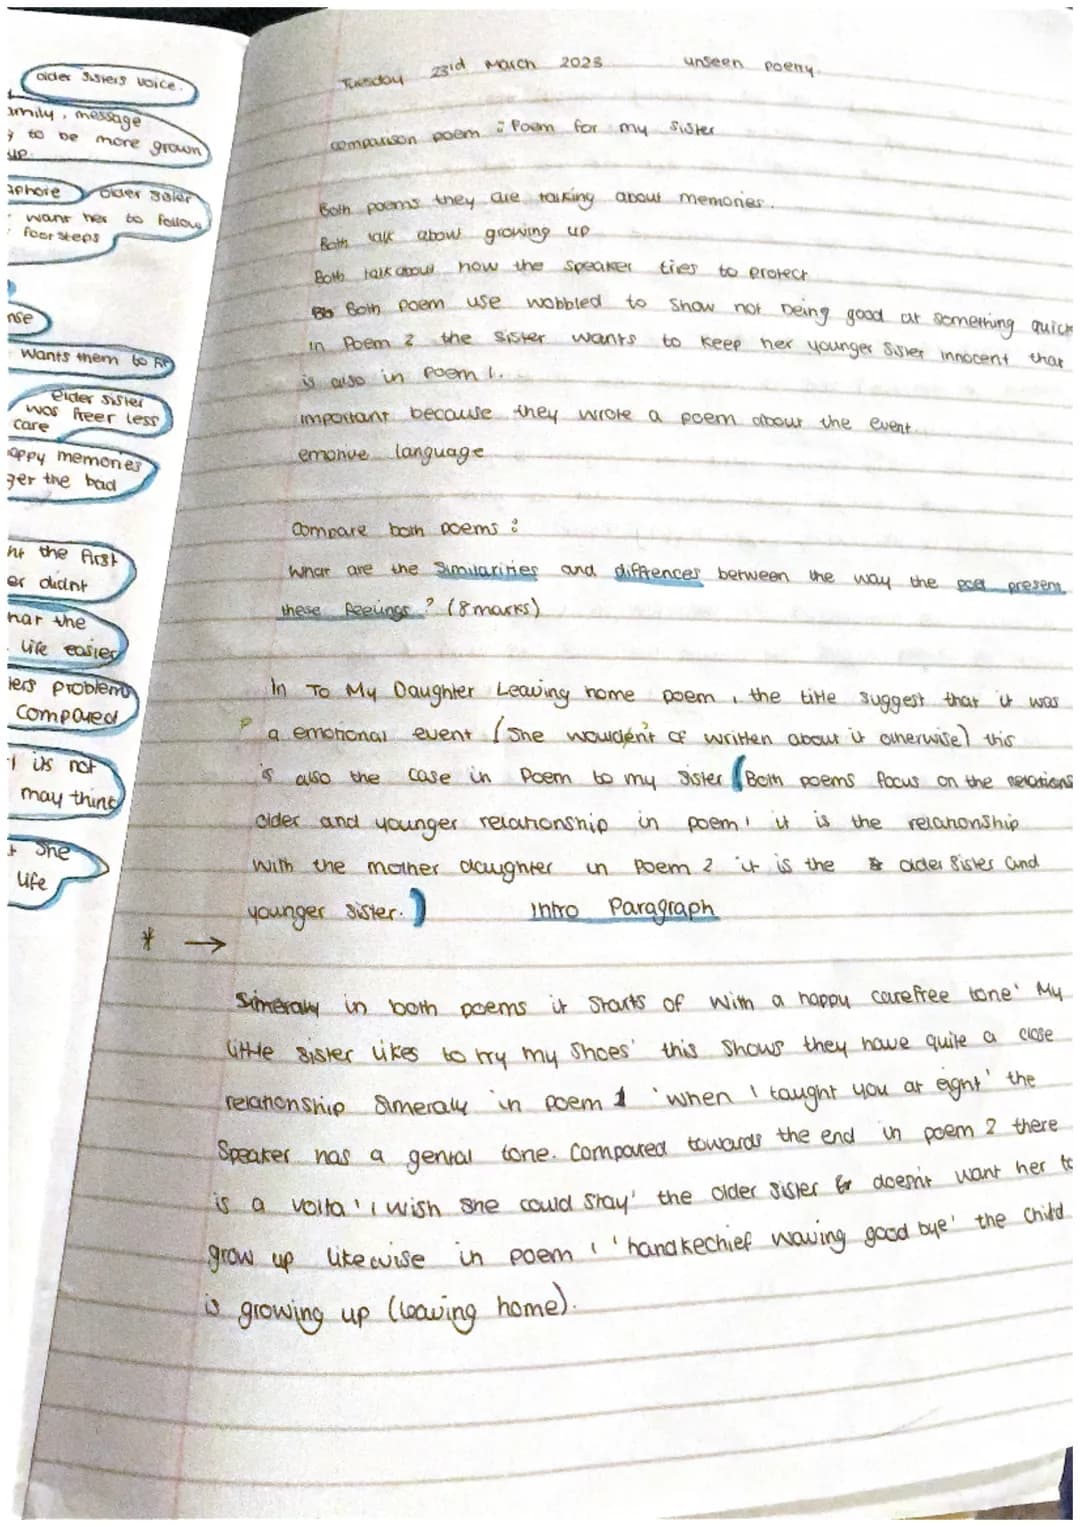 older sisters voice.
amily, message
y to be more grown
up.
aphore older sister
want her to follow
footsteps
nse
wants them to
elder sister
was freer less
care
appy memories
ger the bad
ht the first
er didnt
hat the
life easier
lers problems
compared
it is not
may think
t she
life
Tuesday 23rd March 2023 unseen poetry
comparison poem : Poem for my sister
Both poems they are talking about memories.
Both talk about growing up
Both talk about how the speaker tries to protect
Both poem use wobbled to show not being good at something quick
in Poem 2 the sister wants to keep her younger sister innocent that
is also in poem 1.
important because they wrote a poem about the event.
emotive language
Compare both poems :
What are the similarities and diffrences between the way the poet present
these feelings? (8 marks)
In To My Daughter Leaving home poem, the title suggest that it was
a emotional event (She wouldent of written about it otherwise) this
is also the case in Poem to my sister (Both poems focus on the relations
older and younger relationship in poem 1 it is the relationship
with the mother daughter in Poem 2 it is the older sister and
younger sister.) Intro Paragraph
* →
Simeraly in both poems it starts of with a happy carefree tone 'My
little sister likes to try my shoes' this shows they have quite a close
relationship Simeraly in poem 1 'when I taught you at eight' the
Speaker has a gental tone. Compared towards the end in poem 2 there
is a volta 'I wish she could stay' the older sister doesn't want her to
grow up likewise in poem 1 'handkechief waving good bye' the child
is growing up (leaving home).